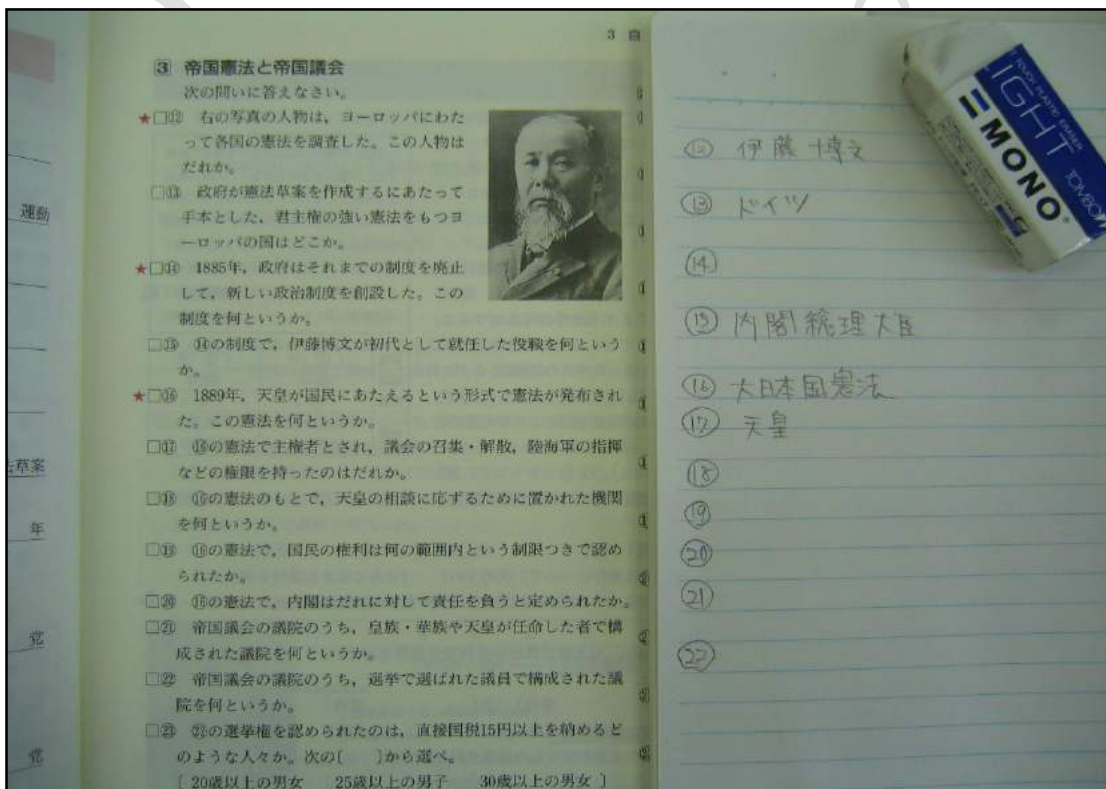 3 自
3 帝国憲法と帝国議会
次の問いに答えなさい。
★□⑫ 右の写真の人物は，ヨーロッパにわた
って各国の憲法を調査した。この人物は
だれか。
□⑬ 政府が憲法草案を作成するにあたって
手本とした，君主権の強い憲法をもつヨ
ーロッパの国はどこか。
★□⑭ 1885年，政府はそれまでの制度を廃止
して，新しい政治制度を創設した。この
制度を何というか。
□⑮ ⑭の制度で，伊藤博文が初代として就任した役職を何という
か。
★□⑯ 1889年，天皇が国民にあたえるという形式で憲法が発布され
た。この憲法を何というか。
□⑰ ⑯の憲法で主権者とされ，議会の召集・解散，陸海軍の指揮
などの権限を持ったのはだれか。
□⑱ ⑯の憲法のもとで，天皇の相談に応ずるために置かれた機関
を何というか。
□⑲ ⑯の憲法で，国民の権利は何の範囲内という制限つきで認め
られたか。
□⑳ ⑯の憲法で，内閣はだれに対して責任を負うと定められたか。
□㉑ 帝国議会の議院のうち，皇族・華族や天皇が任命した者で構
成された議院を何というか。
□㉒ 帝国議会の議院のうち，選挙で選ばれた議員で構成された議
院を何というか。
□㉓ ㉒の選挙権を認められたのは，直接国税15円以上を納めるど
のような人々か。次の[　　]から選べ。
[ 20歳以上の男女　25歳以上の男子　30歳以上の男女 ]
運動
法草案
年
党
党
⑫ 伊藤博文
⑬ ドイツ
⑭
⑮ 内閣総理大臣
⑯ 大日本国憲法
⑰ 天皇
⑱
⑲
⑳
㉑
㉒
TOUCH PLASTIC ERASER
IGHT TOMBOW
MONO